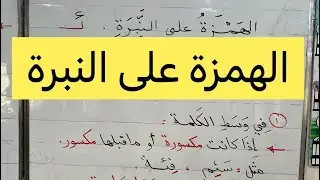 الهَمْزَةُ على النَّبِرَةِ . ئـ
الهمزة على النبرة
١ فِي وَسَطِ الكَلِمَة:
إذا كانت مكسورة أو ما قبلها مكسور.
مثل: سَئِم . فِئَة.